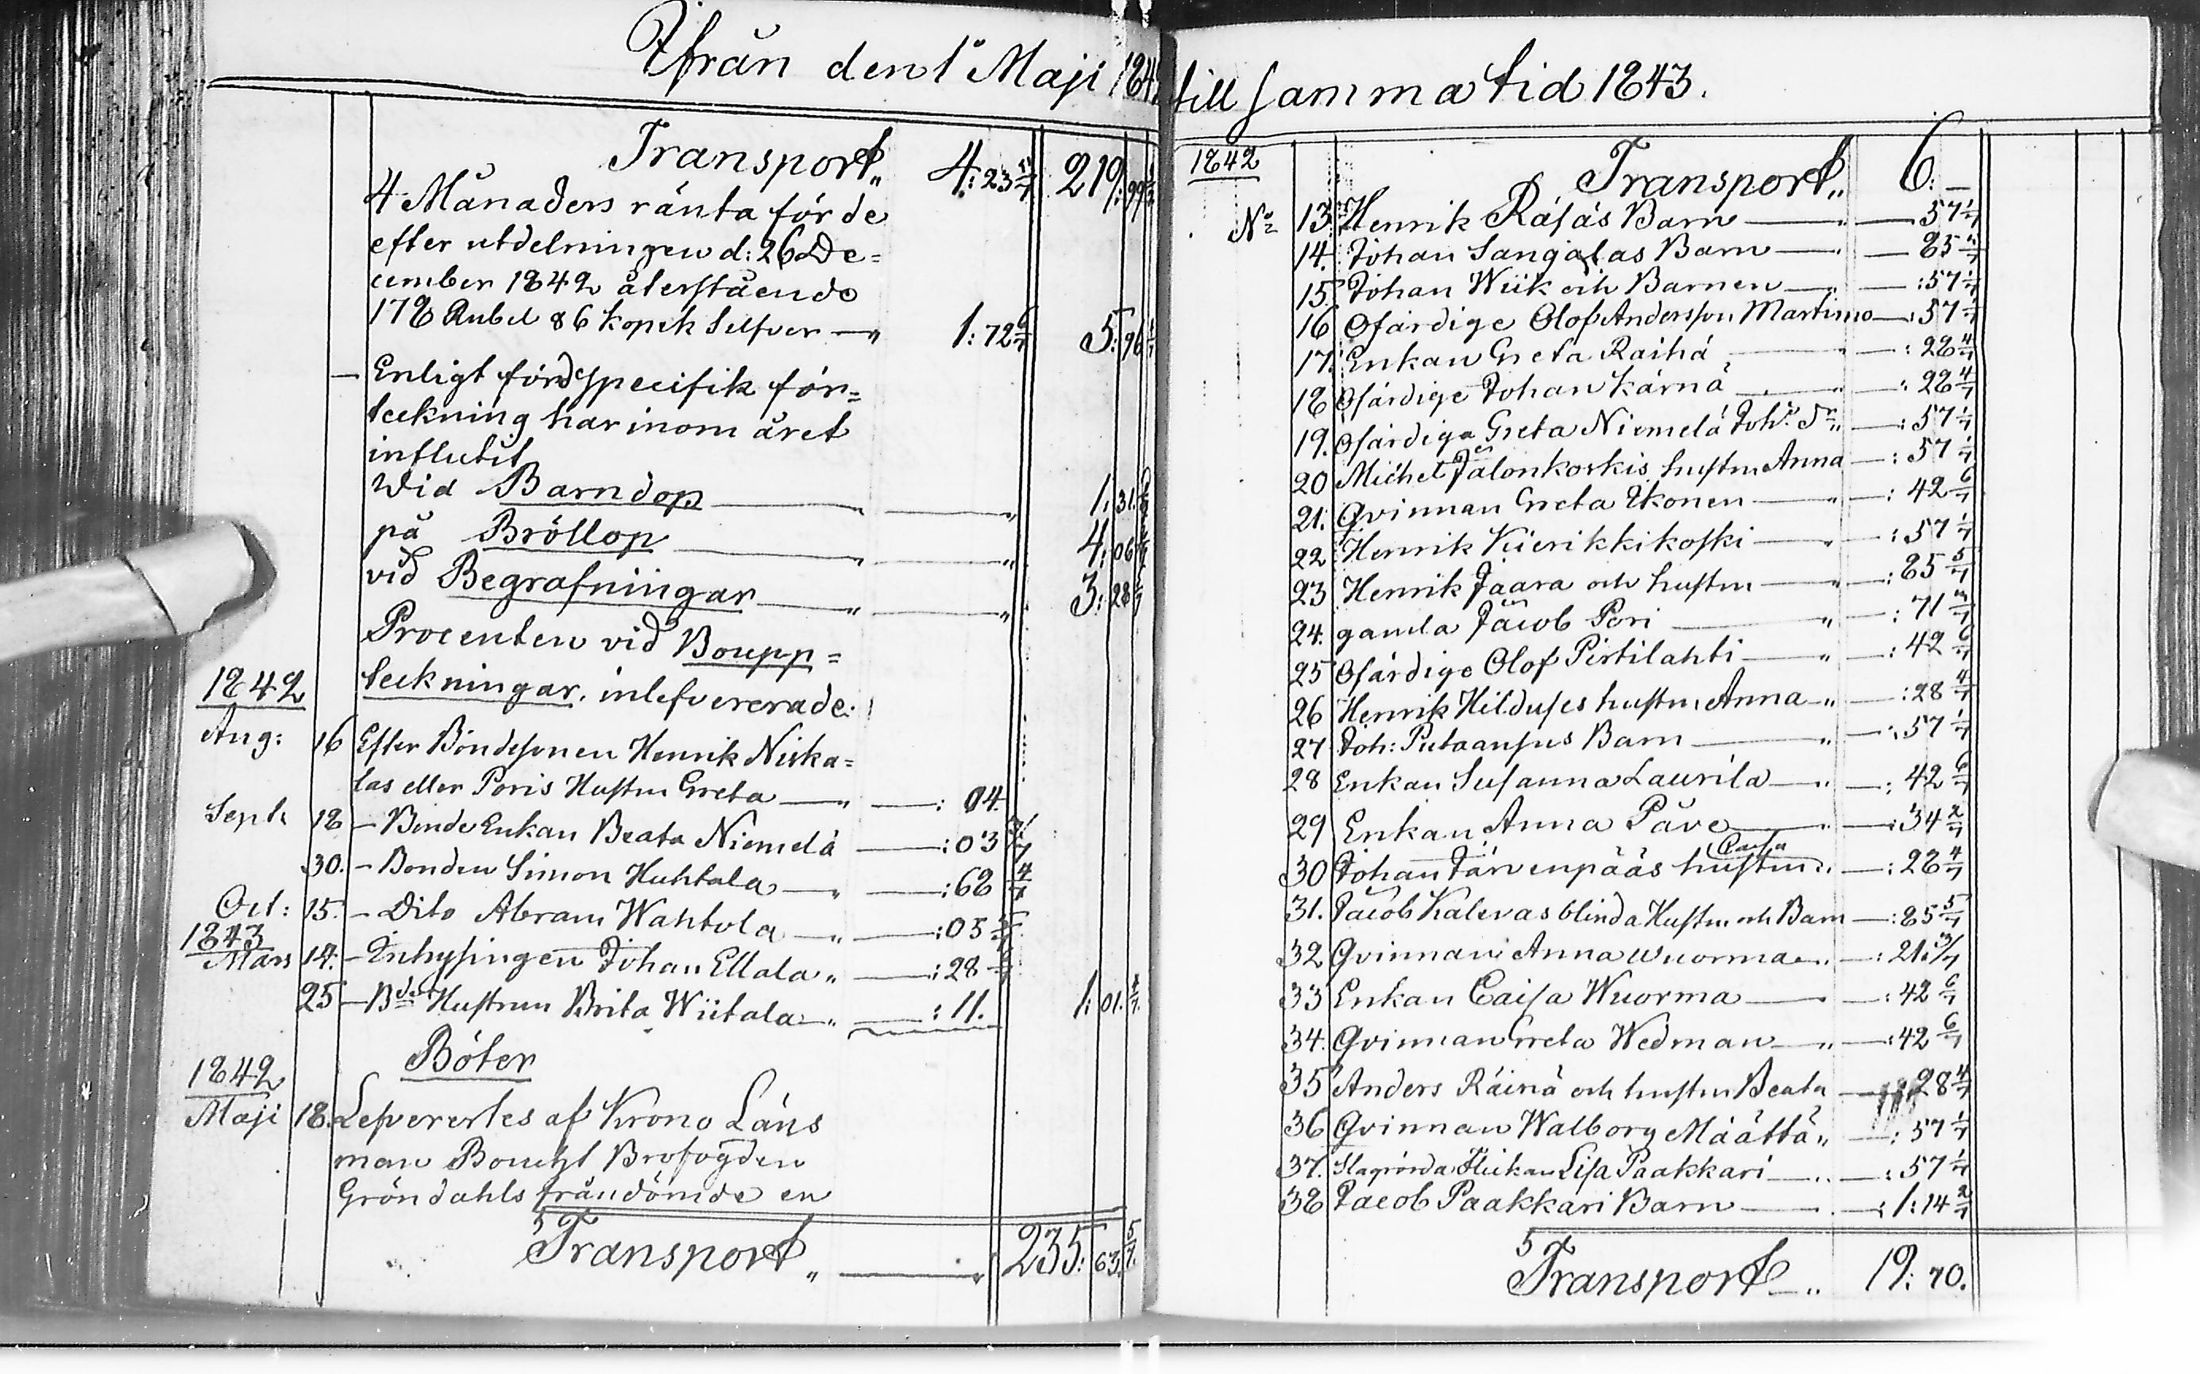 Ifrån den 1ª Maji 184
Transport„ 4: 23 5/7 219: 99
4 Månaders ränta för de
efter utdelningen d: 26 De=
cember 1842 återstående
178 Rubel 86 kopek Silfver — „ 1: 72 6/7 5: 96
— Enligt förd specifik för=
teckning har inom året
influtit
Wid Barndop — „ — „ 1: 31.
på Bröllop — „ — „ 4: 06
vid Begrafningar — „ — „ 3: 28
Procenten vid Boupp=
1842 teckningar, inlefvererade:
Aug: 16 Efter Bondesonen Henrik Niska=
las eller Poris Hustru Greta — „ — : 04
Sept. 18 — Bonde Enkan Beata Niemelä — : 03 3/7
30. — Bonden Simon Huhtala — „ — : 68 4/7
Oct: 15. — Dito Abram Wahtola — „ — : 05
1843
Mars 14. — Inhysingen Johan Ellala „ — : 28
25 — Bde Hustrun Brita Wiitala — „ — : 11. 1: 01. 4/7
Böter
1842
Maji 18. Lefverertes af Krono Läns
man Boucht Brofogden
Gröndahls fråndömde en
Transport „ — „ 235: 63. 5/7
till samma tid 1843.
1842 Transport „ 6: —
No 13 Henrik Räsäs Barn — „ — 57 1/7
14. Johan Sangalas Barn — „ — 85 5/7
15. Johan Wiik och Barnen — „ — : 57 1/7
16 Ofärdige Olof Andersson Martimo — : 57 1/7
17. Enkan Greta Raihä — „ — : 28 4/7
18 Ofärdige Johan Kärnä — „ — : 28 4/7
19. Ofärdiga Greta Niemelä Johs dr „ — : 57 1/7
20 Michel Jalonkoskis hustru Anna — : 57 1/7
21. Qvinnan Greta Ikonen — „ — : 42 6/7
22 Henrik Kierikkikoski — „ — : 57 1/7
23 Henrik Jaara och hustru — „ — : 85 5/7
24. gamla Jacob Pori — „ — : 71 3/7
25 Ofärdige Olof Pirtilahti — „ — : 42 6/7
26 Henrik Hilduses hustru Anna — „ — : 28 4/7
27 Joh: Putaansus Barn — „ — : 57 1/7
28 Enkan Susanna Laurila — „ — : 42 6/7
29 Enkan Anna Päve — „ — : 34 2/7
30 Johan Järvenpääs hustru Caisa „ — : 28 4/7
31. Jacob Kalevas blinda Hustru och Barn — : 85 5/7
32 Qvinnan Anna Wuorma — „ — : 21. 3/7
33 Enkan Caisa Wuorma — „ — : 42 6/7
34. Qvinnan Greta Wedman — „ — : 42 6/7
35 Anders Räinä och hustru Beata — 28 4/7
36 Qvinnan Walborg Määttä „ — : 57 1/7
37. Slagrörda Flickan Lisa Paakkari — „ — : 57 1/7
38 Jacob Paakkari Barn — „ — : 1: 14 2/7
Transport — „ 19: 70.